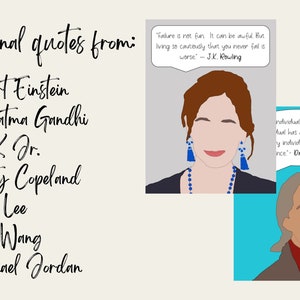 nal quotes from:
t Einstein
atma Gandhi
K Jr.
y Copeland
Lee
Wang
ael Jordan
"Failure is not fun. It can be awful. But
living so cautiously that you never fail is
worse." — J.K. Rowling
individual
ual has a
y individu
nce."